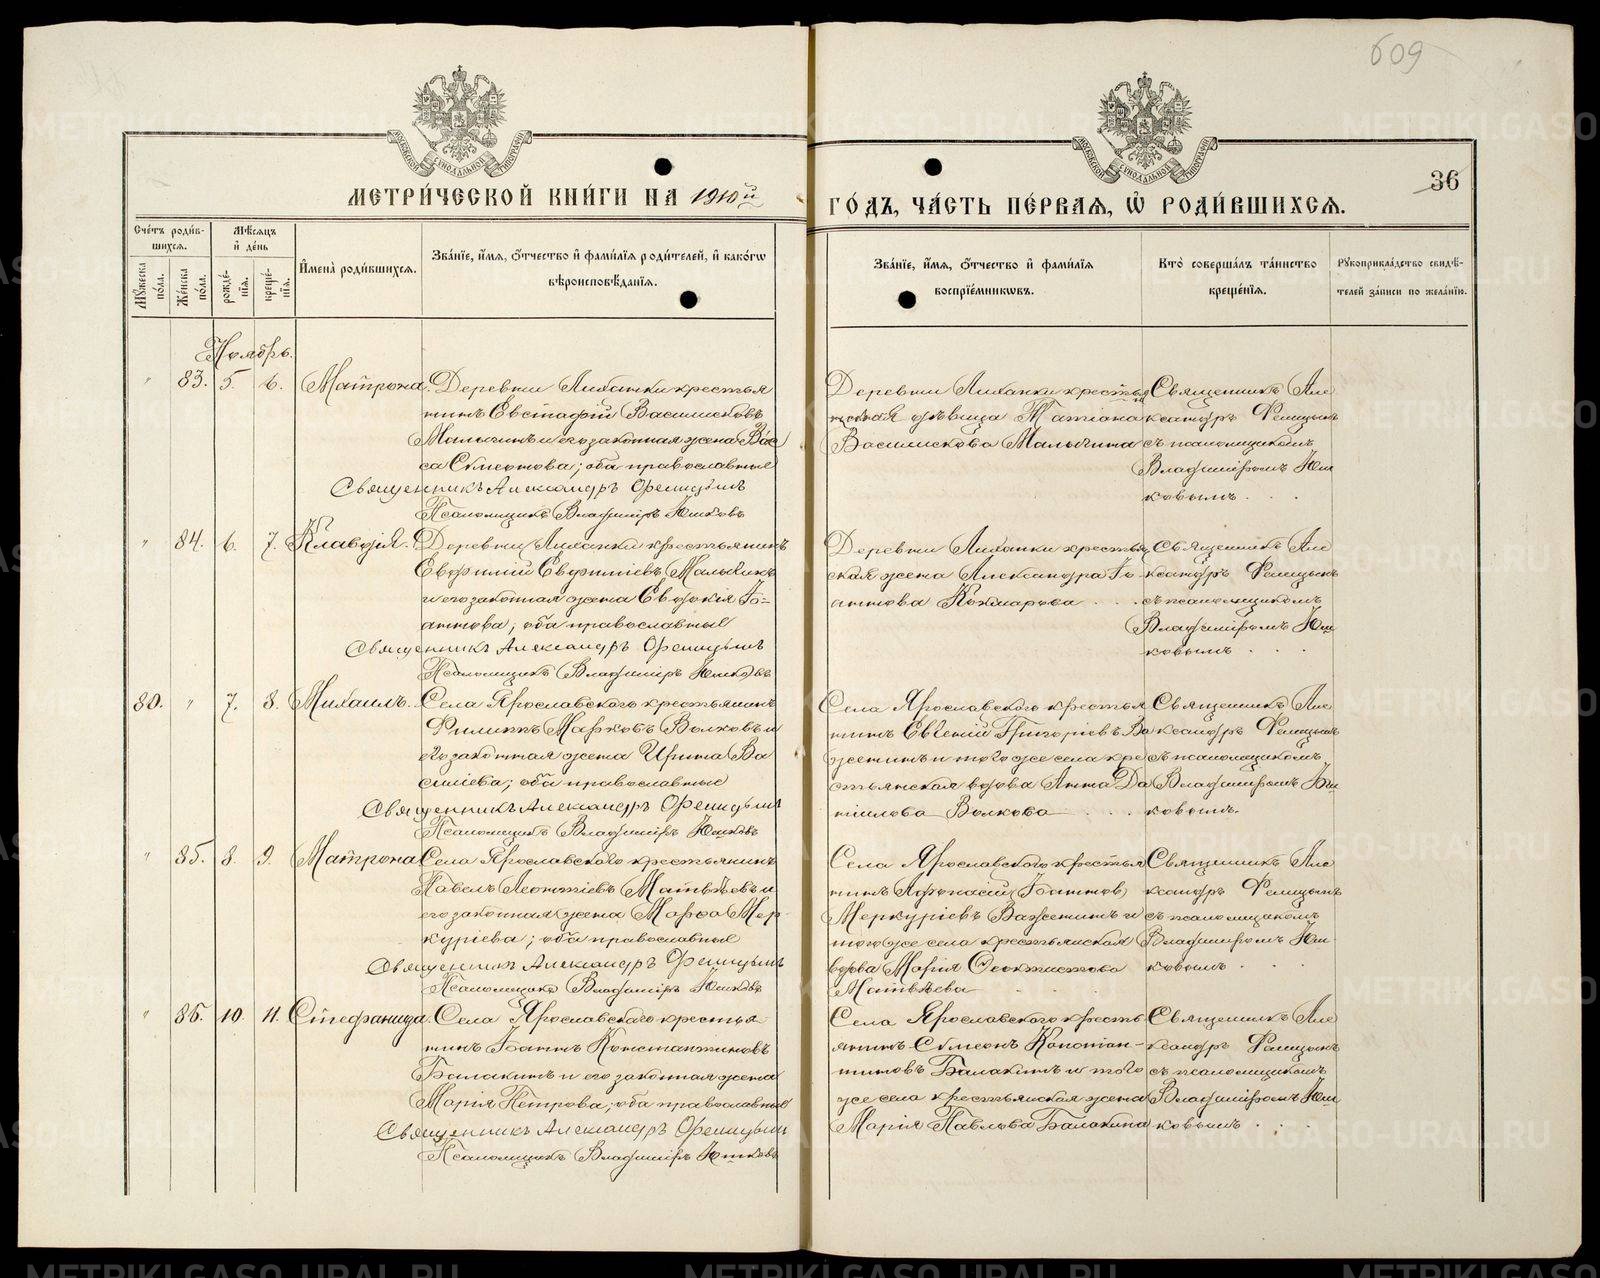 609
36
МОСКОВСКОЙ СѴНОДАЛЬНОЙ ТИПОГРАФІИ
МОСКОВСКОЙ СѴНОДАЛЬНОЙ ТИПОГРАФІИ
МЕТРИ́ЧЕСКОЙ КНИ́ГИ НА 1910й
ГО́ДЪ, ЧА́СТЬ ПЕ́РВАЯ, Ѡ҆ РОДИ́ВШИХСЯ.
Сче́тъ роди́в-
шихся.
Мѣ́сяцъ
и҆ де́нь
Мꙋ́жеска по́ла.
Же́нска по́ла.
рожде́-
нїя.
креще́-
нїя.
И҆мена̀ роди́вшихся.
Зва́нїе, и҆́мя, ѻ҆́тчество и҆ фами́лїя роди́телей, и҆ како́гѡ
вѣроисповѣ́данїя.
Зва́нїе, и҆́мя, ѻ҆́тчество и҆ фами́лїя
воспрїе́мникѡвъ.
Кто̀ соверша́лъ та́инство
креще́нїя.
Рꙋкоприкла́дство свидѣ́-
телей за́писи по жела́нїю.
Ноябрь.
" 83. 5. 6. Матрона.
Деревни Лиханки крестья
нинъ Евстафій Василисковъ
Малыгинъ и его законная жена Вас
са Сѵмеонова; оба православные
Священникъ Александръ Флицынъ
Псаломщикъ Владиміръ Юшковъ
Деревни Лиханки крестья
нская дѣвица Татіана
Василискова Малыгина
Священникъ Але
ксандръ
съ псаломщикомъ
Владиміромъ Юш
ковымъ . . .
" 84. 6. 7. Клавдія.
Деревни Лиханки крестьянинъ
Евфимій Евфиміевъ Малыгинъ
и его законная жена Евдокія Іо-
аннова; оба православные
Священникъ Александръ
Псаломщикъ Владиміръ Юшковъ
Деревни Лиханки крестьян
ская жена Александра Іо
аннова Кожмарова . . .
Священникъ Але
ксандръ
съ псаломщикомъ
Владиміромъ Юш
ковымъ . . .
80. " 7. 8. Михаилъ.
Села Ярославского крестьянинъ
Филиппъ Марковъ Волковъ и
его законная жена Ирина Ва
силіева; оба православные
Священникъ Александръ
Псаломщикъ Владиміръ Юшковъ
Села Ярославского крестья
нинъ Евгеній Григоріевъ Ва
женинъ и того же села кре
стьянская вдова Анна Да
ниилова Волкова . . .
Священникъ Але
ксандръ
съ псаломщикомъ
Владиміромъ Юш
ковымъ.
" 85. 8. 9. Матрона
Села Ярославского крестьянинъ
Павелъ Леонтіевъ Матвѣевъ и
его законная жена Марѳа Мер-
куріева; оба православные
Священникъ Александръ
Псаломщикъ Владиміръ Юшковъ
Села Ярославского крестья
нинъ Аѳанасій (Іоаннов)
Меркуріевъ Важенинъ и
того же села крестьянская
вдова Марія Ѳеоктистова
Матвѣева
Священникъ Але
ксандръ
съ псаломщикомъ
Владиміромъ Юш-
ковымъ . . .
" 86. 10. 11. Стефанида.
Села Ярославскаго крестья-
нинъ Іоаннъ Константиновъ
Балакинъ и его законная жена
Марія Петрова; оба православные
Священникъ Александръ
Псаломщикъ Владиміръ Юшковъ
Села Ярославского кресть
янинъ Сѵмеонъ Констан-
тиновъ Балакинъ и того
же села крестьянская жена
Марія Павлова Балакина
Священникъ Але
ксандръ
съ псаломщикомъ
Владиміромъ Юш
ковымъ . . .
METRIKI.GASO-URAL.RU